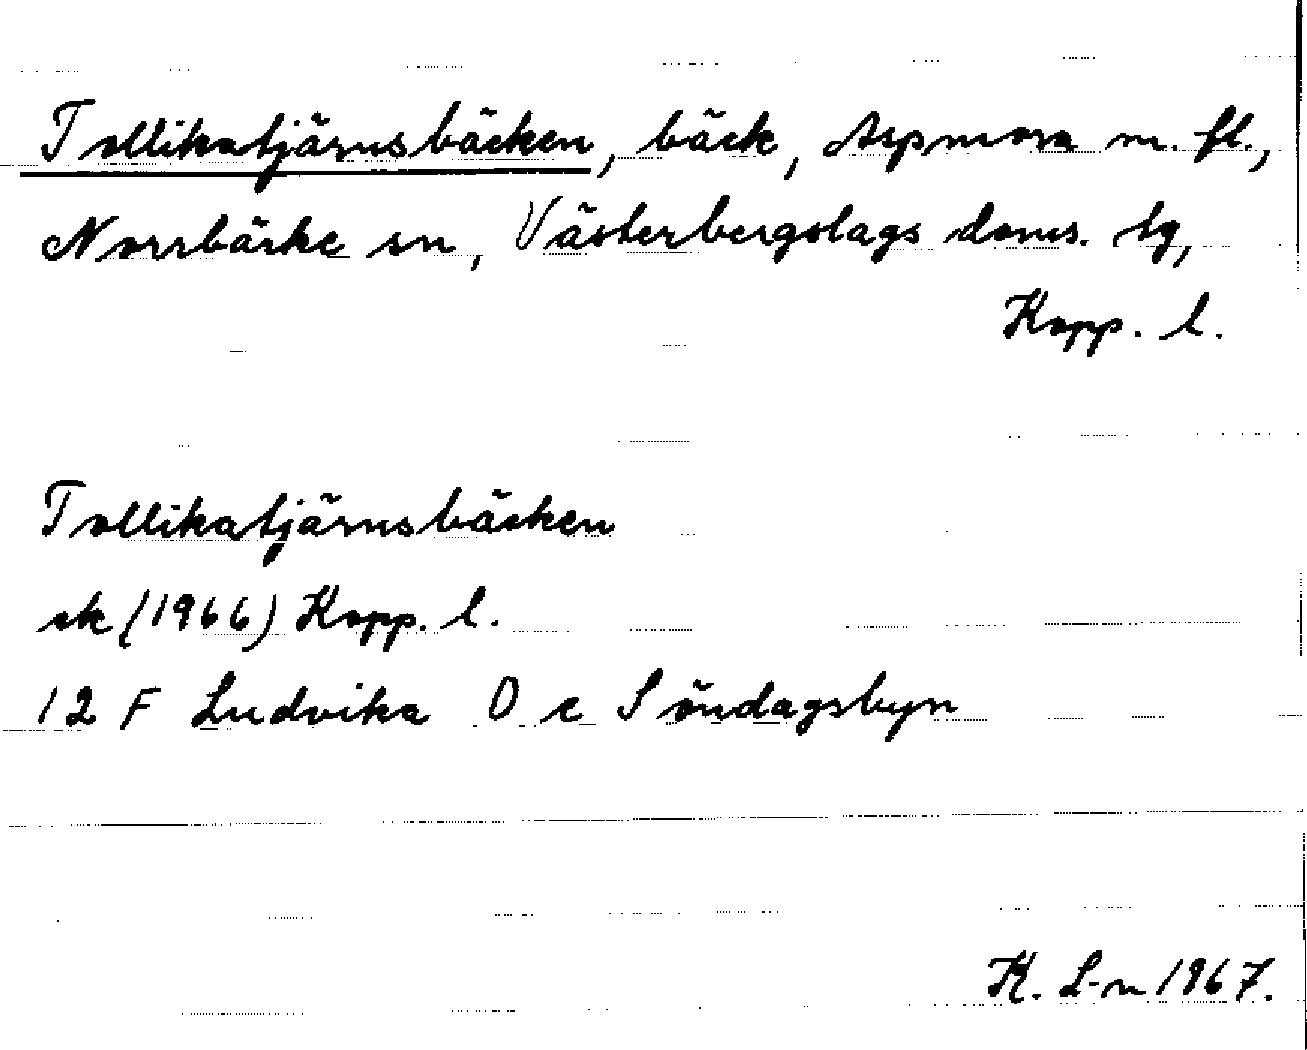 Tollikatjärnsbäcken, bäck, Aspmora m. fl.,
Norrbärke sn, Västerbergslags doms. tg,
Kopp. l.
Tollikatjärnsbäcken
ek (1966) Kopp. l.
12 F Ludvika 0 c Söndagsbyn
K. L-n 1967.